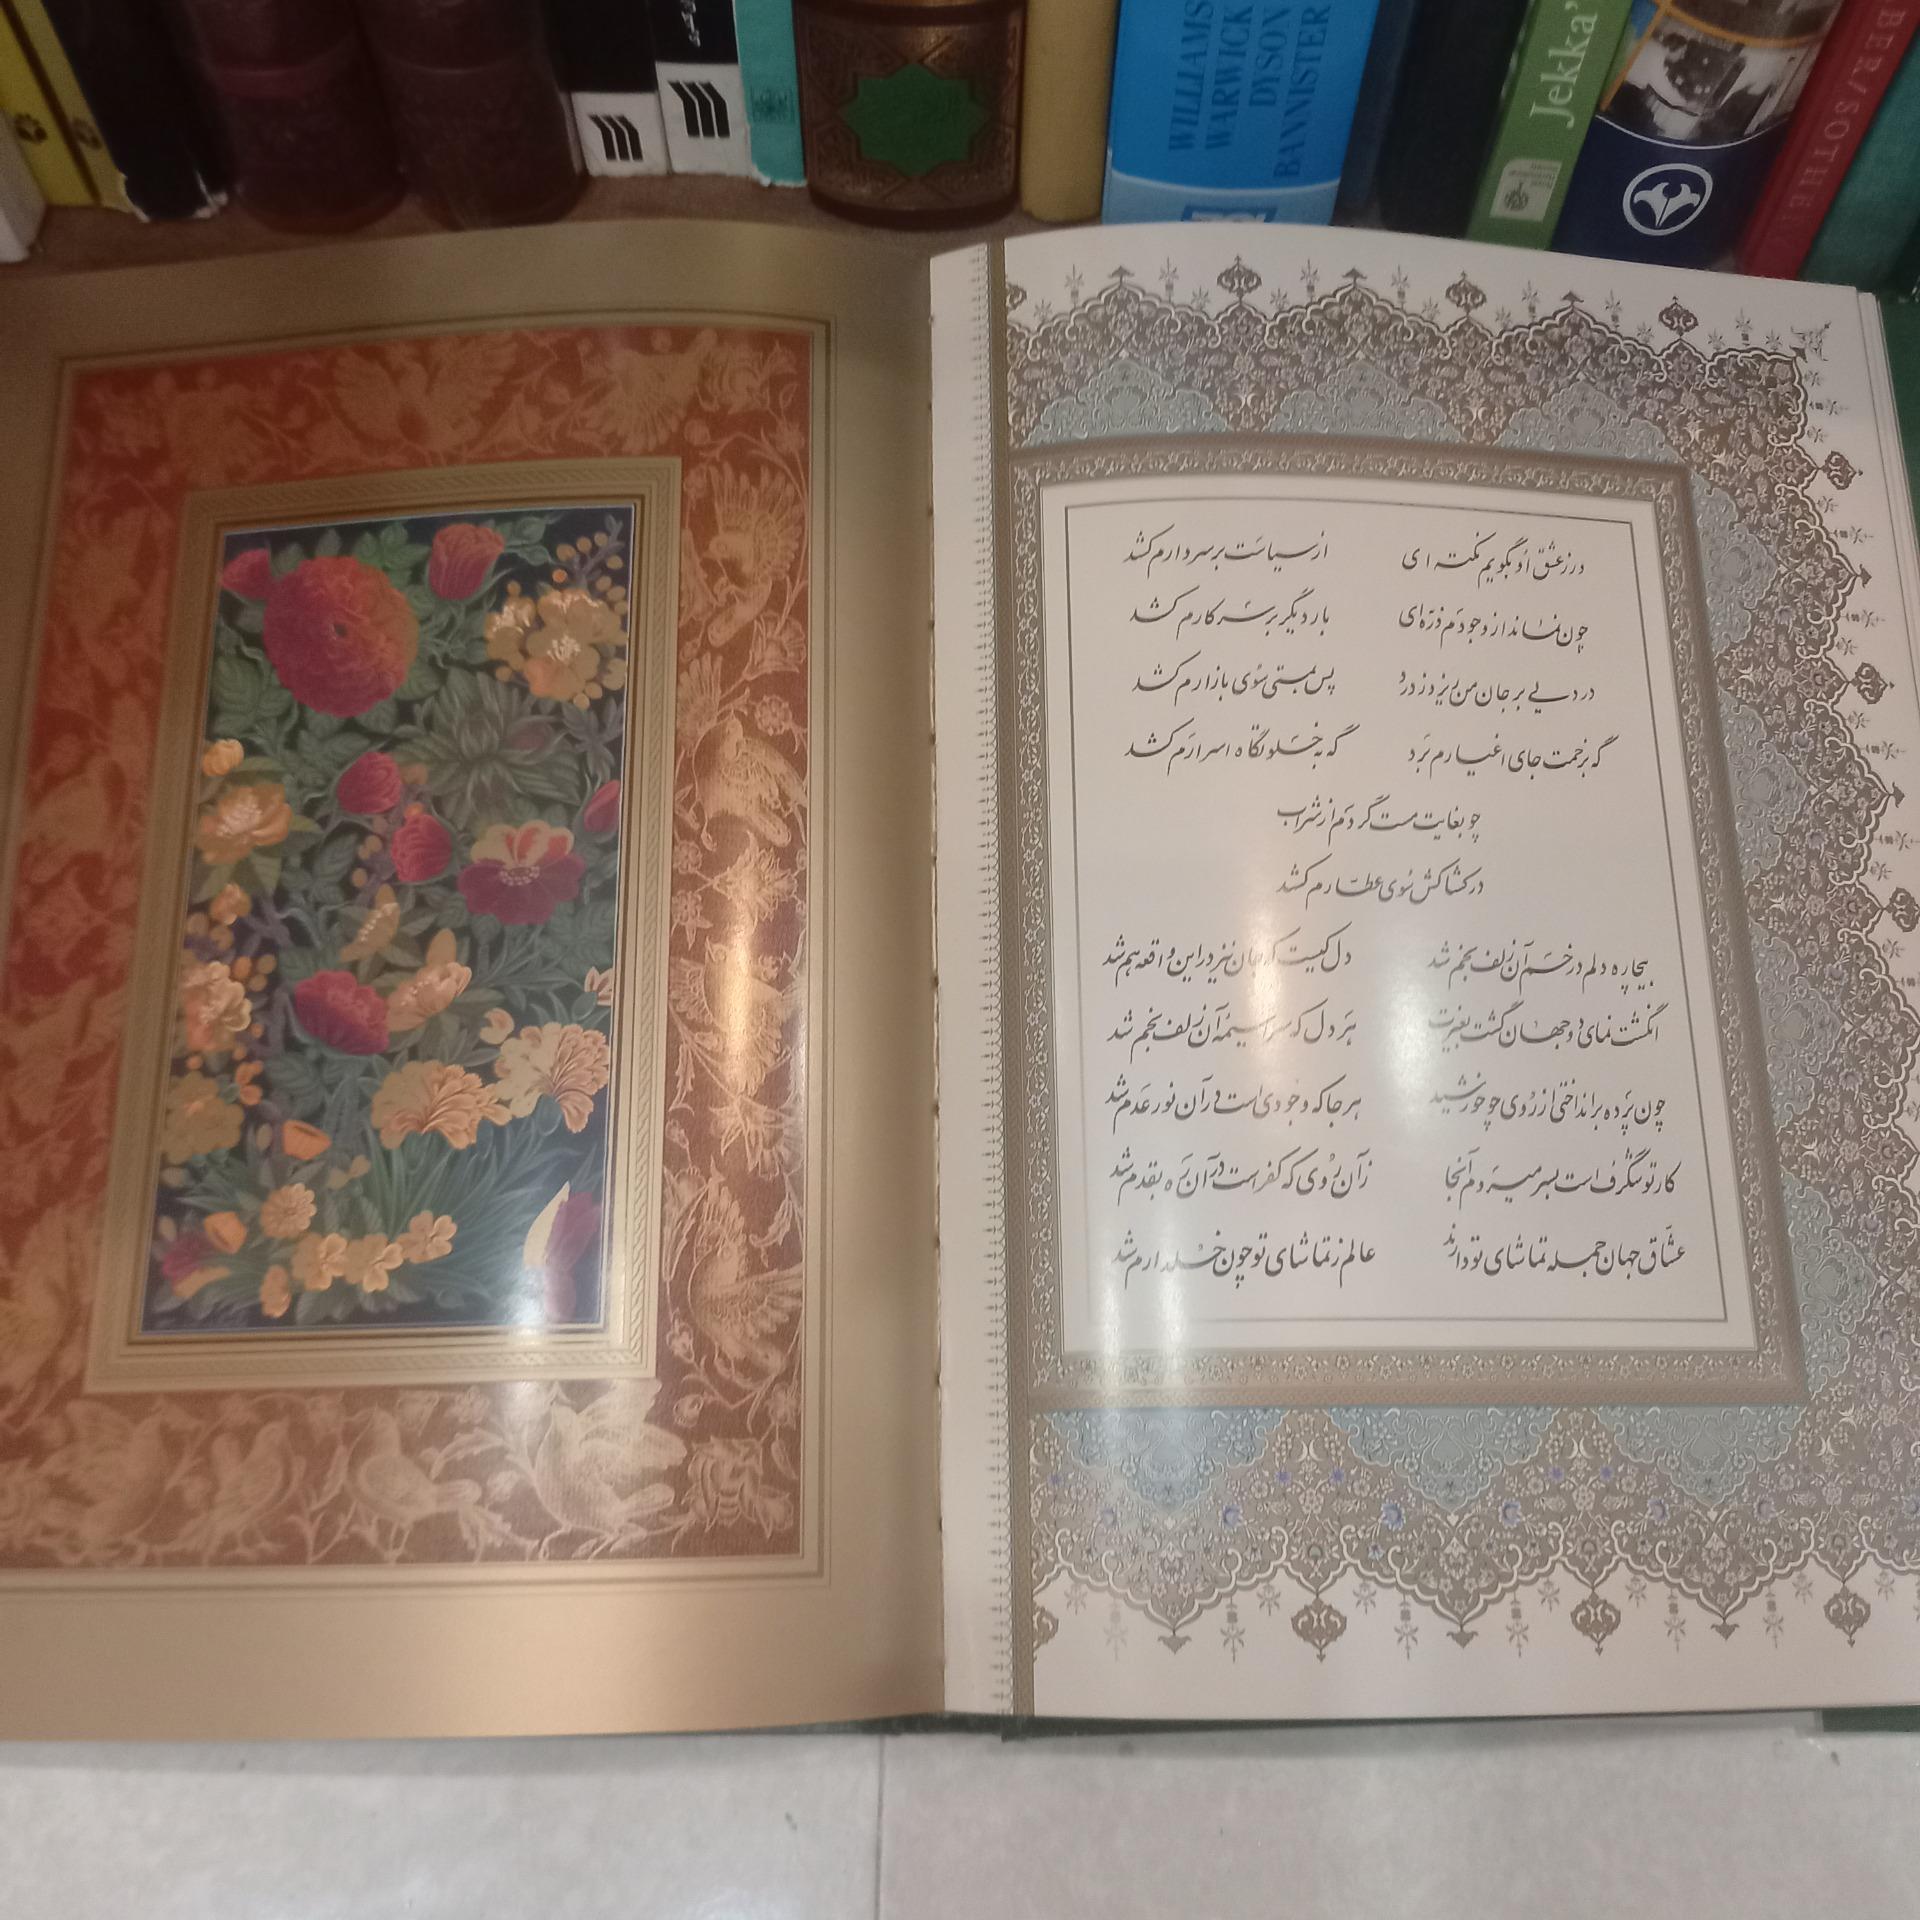 WILLIAMS
WARWICK
DYSON
BANNISTER
Jekka'
ور ز عشق او بگویم نکته ای از سیاست بر سر دارم کشد
چون نماند از وجودم ذره ای بار دیگر بر سر کارم کشد
دردیی بر جان من ریزد ز درد پس بمستی سوی بازارم کشد
گه بزحمت جای اغیارم برد گه به خلوتگاه اسرارم کشد
چو بغایت مست گردم از شراب
در کشاکش سوی عطارم کشد
بیچاره دلم در خم آن زلف بخم شد دل کیست که جان نیز در این واقعه هم شد
انگشت نمای دو جهان گشت بعزت هر دل که سراسیمهٔ آن زلف بخم شد
چون پرده برانداختی از روی چو خورشید هر جا که وجودی است در آن نور عدم شد
کار تو شگرف است بسر میروم آنجا زان روی که کفر است در آن ره بقدم شد
عشاق جهان جمله تماشای تو دارند عالم ز تماشای تو چون خلد ارم شد